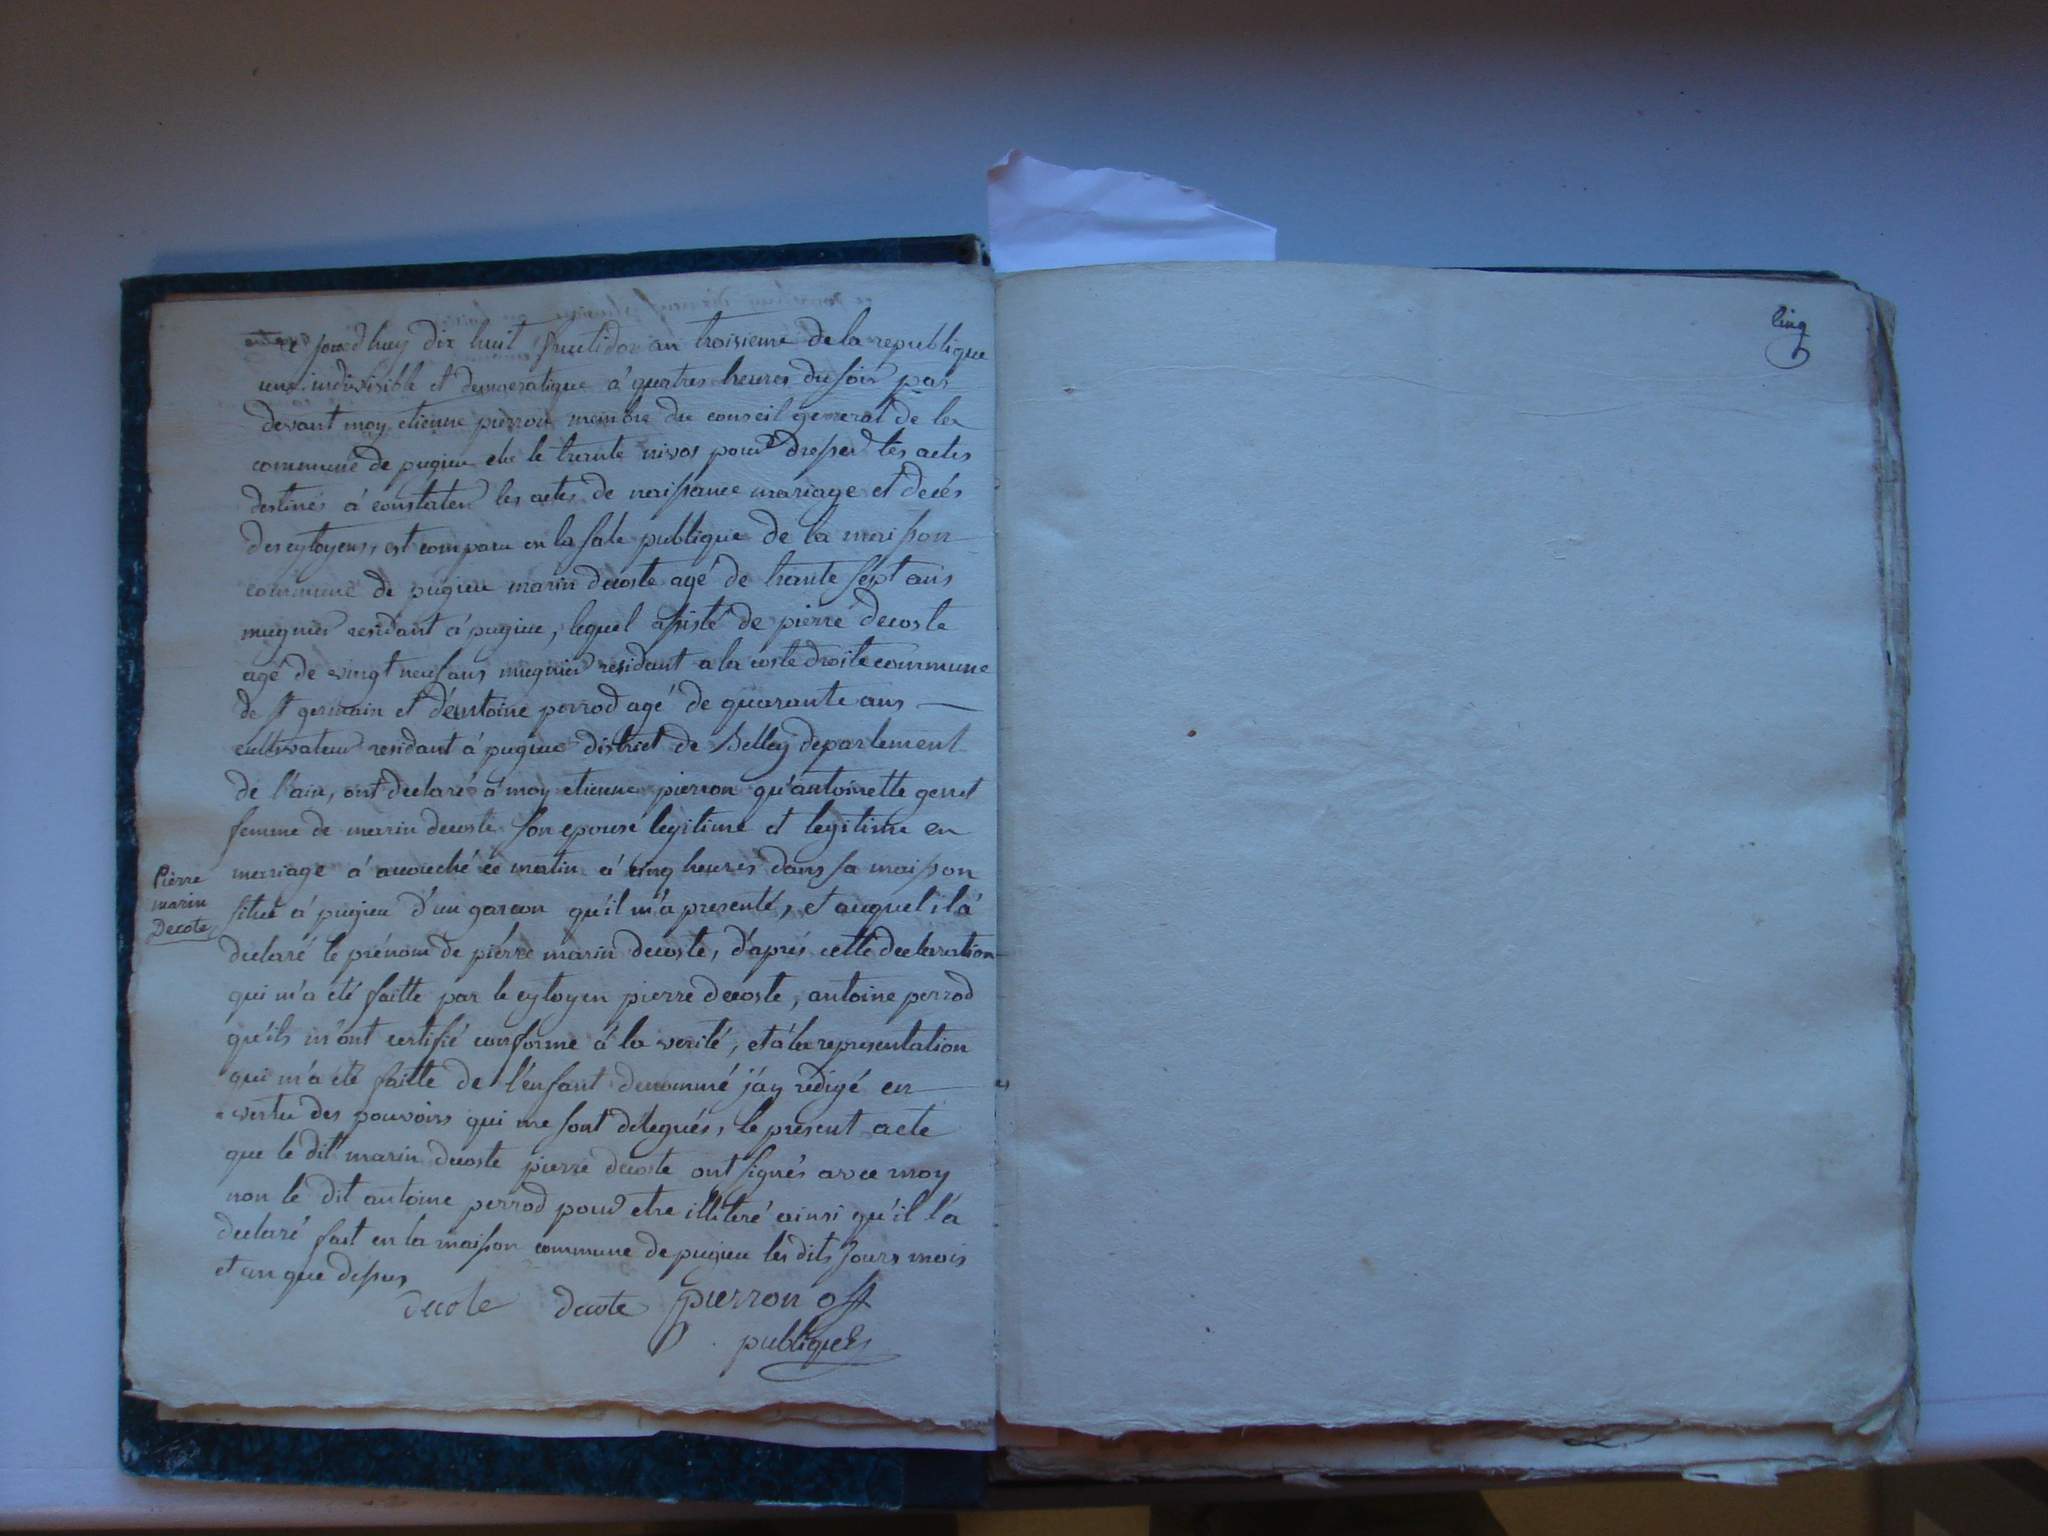 ce jourdhuy dix huit fructidor an troisieme de la republique
une indivisible et democratique a quatres heures du soir par
devant moy etienne pierron membre du conseil general de la
commune de pugieu elu le trente nivos pour dresser les actes
destinés à constater les actes de naissance mariage et decés
des cytoyens, est comparu en la sale publique de la maison
commune de pugieu marin decoste agé de trante sept ans
mugnier residant à pugieu, lequel assisté de pierre decoste
agé de vingt neuf ans mugnier residant a la coste droite commune
de st germain et d'entoine perrod agé de quarante ans
cultivateur residant à pugieu district de Belley departement
de l'ain, ont declaré à moy etienne pierron qu'antoinette
femme de marin decoste son epouse legitime et legitime en
mariage à accouché ce matin à cinq heures dans sa maison
situé à pugieu d'un garcon qu'il m'a presenté, et auquel il à
Pierre
marin
Decote
declaré le prénom de pierre marin decoste, d'aprés cette declaration
qui m'a été faitte par le cytoyen pierre decoste, antoine perrod
qu'ils m'ont certifié conforme à la verité, et à la representation
qui m'a été faitte de l'enfant denommé j'ay redigé en
vertu des pouvoirs qui me sont délegués, le present acte
que le dit marin decoste pierre decoste ont signés avec moy
non le dit antoine perrod pour etre illiteré ainsi qu'il l'a
declaré fait en la maison commune de pugieu les dits jours mois
et an que dessus
decote decote pierron off
publique
cinq